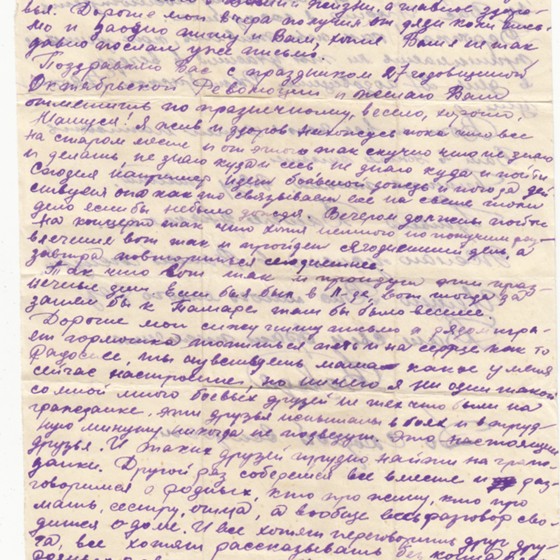 жизни, а главное здоро-
вья. Дорогие мои вчера получил от дяди Коти пись-
мо и заодно пишу и Вам, хотя Вам не так
давно послал уже письмо.
Поздравляю Вас с праздником 27 годовщиной
Октябрьской Революции и желаю Вам
отметить по праздничному, весело, хорошо.
Мамуся! Я жив и здоров нахожусь пока что все
на старом месте и от этого так скучно что не знаю
и делать, не знаю куда и сесть не знаю куда и пойти
Сегодня например идет большой дождь и погода дей
ствует она как то связывает все на свете
дело если бы небыло дождя. Вечером должны пойти
на концерт так что хотя немного но получим раз
влечения вот так и пройдет сегодняшний день, а
завтра повториться сегодняшнее.
Так что вот так и пройдут эти праз-
ничные дни если бы я был в вот тогда да
зашел бы к Тамаре там бы было веселее.
Дорогие мои сижу пишу письмо а рядом игра-
ет гармошка и на сердце как то
радостнее, ты чувствуешь мама какое у меня
сейчас настроение, но ничего я ни один такой
со мной много боевых друзей не тех что были на
гражданке. эти друзья испытаны в боях и в труд
ную минуту никогда не подведут. Это настоящие
друзья. И таких друзей трудно найти на граж
данке. Другой раз соберемся все вместе и раз
говоримся о родных, кто про жену, кто про
мать, сестру, отца, а вообще весь разговор сво
дится о доме. И все хотят переговорить друг дру
га, все хотят рассказывать без конца о